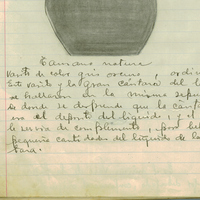 Tamaño natural
Vasito de color gris oscuro, ordin
Este vasito y la gran cántara del l
se hallaron en la misma sepu
de donde se desprende que la cánt
era el deposito del liquido, y el
le servia de complemento, para beb
pequeña cantidades del liquido de la
tara.